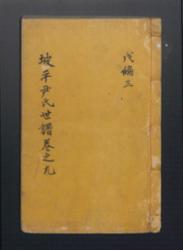 戊編三
坡平尹氏世譜卷之九